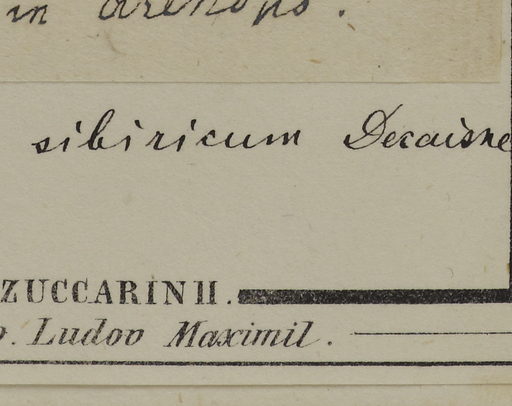 in arenosis.
sibiricum Decaisne
ZUCCARINII.
o. Ludov Maximil.